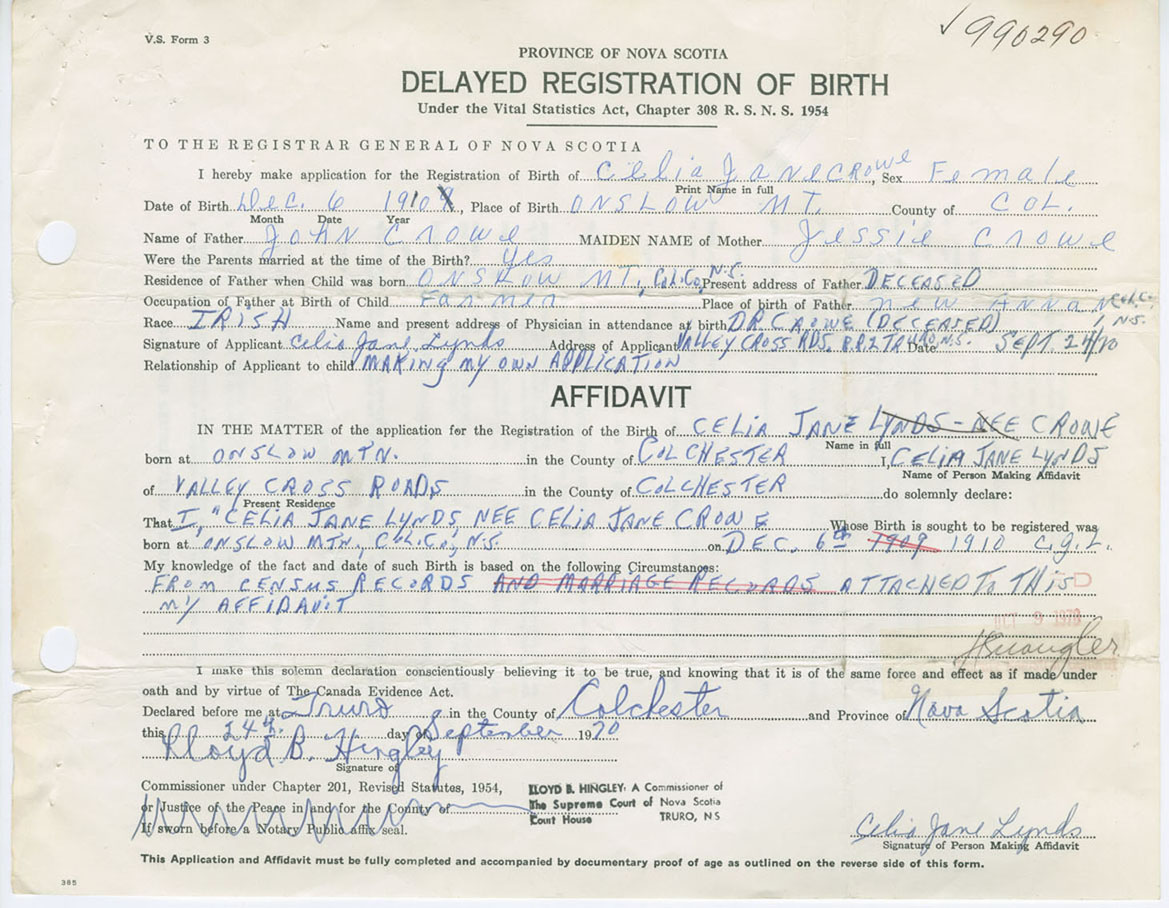 V.S. Form 3
990290
PROVINCE OF NOVA SCOTIA
DELAYED REGISTRATION OF BIRTH
Under the Vital Statistics Act, Chapter 308 R. S. N. S. 1954
TO THE REGISTRAR GENERAL OF NOVA SCOTIA
I hereby make application for the Registration of Birth of Celia Jane Crowe, Sex Female
Print Name in full
Date of Birth Dec. 6 1910, Place of Birth ONSLOW MT. County of COL.
Month Date Year
Name of Father John Crowe MAIDEN NAME of Mother Jessie Crowe
Were the Parents married at the time of the Birth? Yes
Residence of Father when Child was born ONSLOW MT., Col. Co., N.S. Present address of Father DECEASED
Occupation of Father at Birth of Child Farmer Place of birth of Father New Annan Col. Co. N.S.
Race IRISH Name and present address of Physician in attendance at birth DR. CROWE (DECEASED)
Signature of Applicant Celia Jane Lynds Address of Applicant VALLEY CROSS RDS. R.R.2 TRURO N.S. Date SEPT. 24/70
Relationship of Applicant to child MAKING MY OWN APPLICATION
AFFIDAVIT
IN THE MATTER of the application for the Registration of the Birth of CELIA JANE LYNDS - NEE CROWE
Name in full
born at ONSLOW MTN. in the County of COLCHESTER I, CELIA JANE LYNDS
Name of Person Making Affidavit
of VALLEY CROSS ROADS in the County of COLCHESTER do solemnly declare:
Present Residence
That I, "CELIA JANE LYNDS, NEE CELIA JANE CROWE Whose Birth is sought to be registered was
born at ONSLOW MTN., COL. CO., N.S. on DEC. 6th 1909 1910 C.J.L.
My knowledge of the fact and date of such Birth is based on the following Circumstances:
FROM CENSUS RECORDS AND MARRIAGE RECORDS ATTACHED TO THIS
MY AFFIDAVIT
OCT 9 1970
I make this solemn declaration conscientiously believing it to be true, and knowing that it is of the same force and effect as if made under
oath and by virtue of The Canada Evidence Act.
Declared before me at Truro in the County of Colchester and Province of Nova Scotia
this 24th. day of September 1970
Lloyd B. Hingley
Signature of
Commissioner under Chapter 201, Revised Statutes, 1954,
or Justice of the Peace in and for the County of
If sworn before a Notary Public affix seal.
LLOYD B. HINGLEY: A Commissioner of
The Supreme Court of Nova Scotia
Court House TRURO, NS
Celia Jane Lynds
Signature of Person Making Affidavit
This Application and Affidavit must be fully completed and accompanied by documentary proof of age as outlined on the reverse side of this form.
385